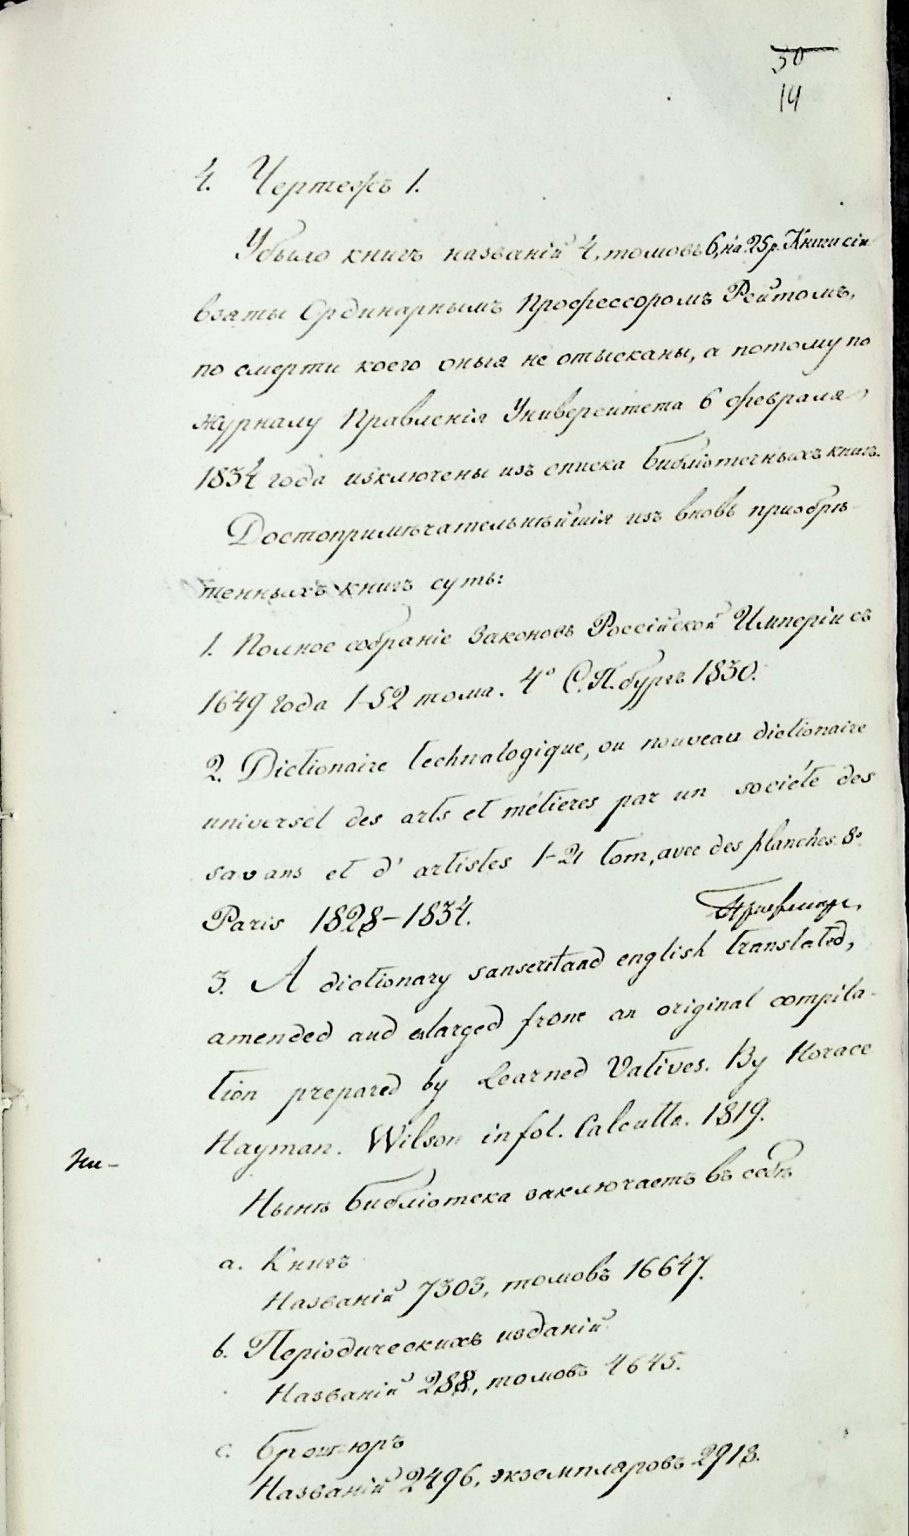 30
14
4. Чертежъ 1.
Убыло книгъ названій 4, томовъ 6, на 25 р. Книги сіи
взяты Ординарнымъ Профессоромъ Рейтомъ,
по смерти коего оныя не отысканы, а потому по
журналу Правленія Университета 6 февраля
1834 года изключены изъ списка библіотечныхъ книгъ.
Достопримѣчательнѣйшія изъ вновь приобрѣ-
тенныхъ книгъ суть:
1. Полное собраніе Законовъ Россійской Имперіи съ
1649 года 1-52 тома. 4° С.П.бургъ 1830.
2. Dictionaire technalogique, ou nouveau dictionaire
universel des arts et métieres par un société des
savans et d' artistes 1-21 tom, avec des planches. 8°
Paris 1828-1834.
3. A dictionary sanscrit and english translated,
amended and enlarged frone an original compila-
tion prepared by Learned Vatives. By Horace
Hayman. Wilson in fol. Calcutta. 1819.
Нынѣ библіотека заключаетъ въ себѣ
a. Книгъ
Названій 7303, томовъ 16647.
b. Періодическихъ изданій
Названій 288, томовъ 4645.
c. Брошюръ
Названій 2496, экземпляровъ 2918.